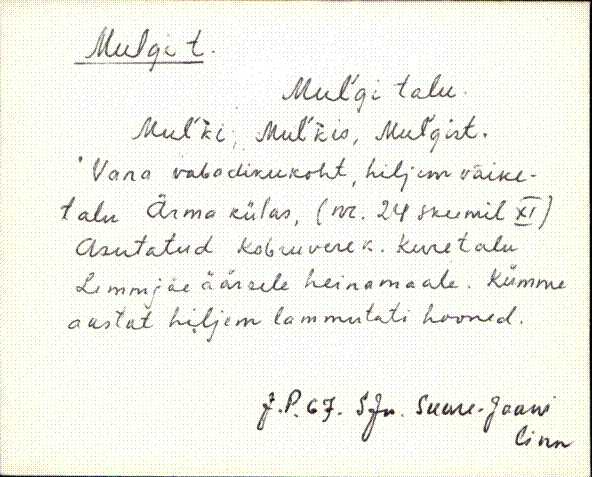 Mulgi t.
Mul'gi talu.
Mul'ki, Mul'kis, Mul'gist.
Vana vabadikukoht, hiljem väike-
talu Ärma külas, (nr. 24 skeemil XI)
Asutatud Kobruvere k. Kure talu
Lemmjäe äärsele heinamaale. Kümme
aastat hiljem lammutati hooned.
J.P. 67. SJn. Suure-Jaani
linn